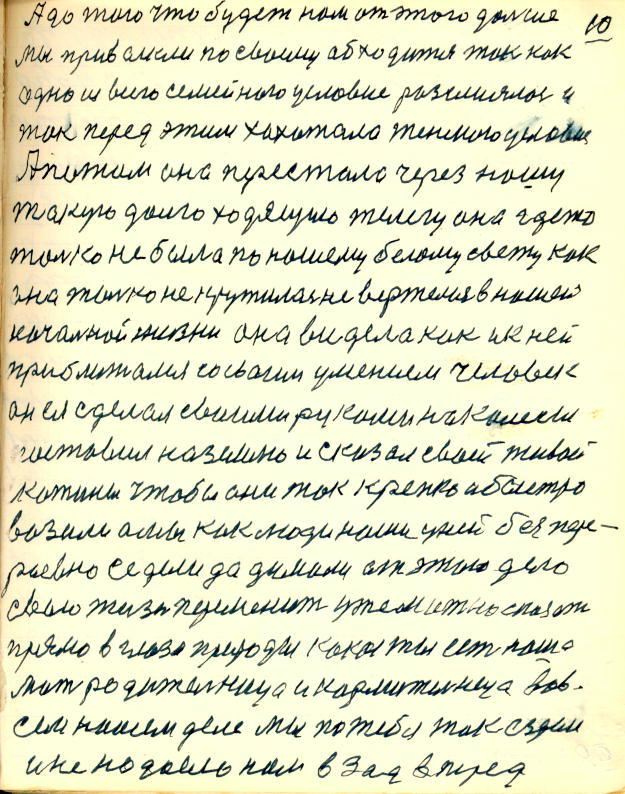 10
А до того что будет нам от этого дольше
мы привыкли по своему абходится так как
одно из всего семейного условие разсмиялос и
так перед этим хахотало темного условие
А потом она перестала через нашу
такую долго ходящую телегу она где то
толко не была по нашему белому свету как
она толко не крутилас не вертелся в нашей
началной жизни она видела как и к ней
приближался со своим умением человек
он ея сделал своими руками на колеса
поставил на землю и сказал своей живой
чтобы они так крепко и быстро
возили а мы как люди наши у ней без пере-
рывно седели да думали от этого дело
свою жизн переменит уже можно сказат
прямо в глаза природы какая ты ест наша
мат родителница и кормителнеца во в-
сем нашем деле мы по тебе так ездим
и не надоело нам в зад вперед